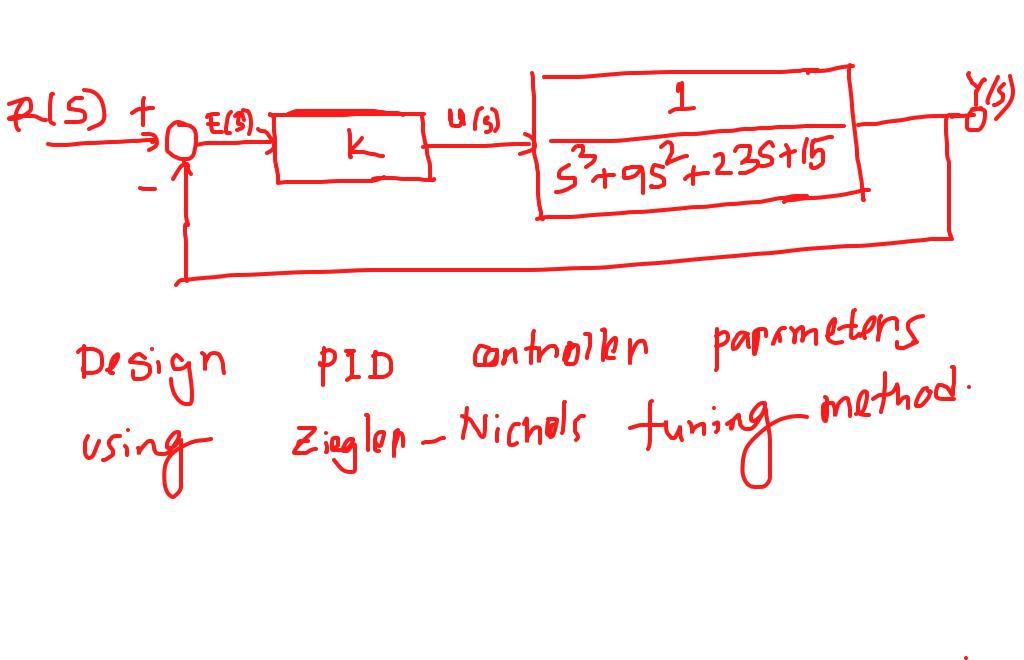 R(S) + E(S) K U(s) 1 Y(s)
S³+9S²+23S+15
-
Design PID controller parameters
using Ziegler-Nichols tuning method.